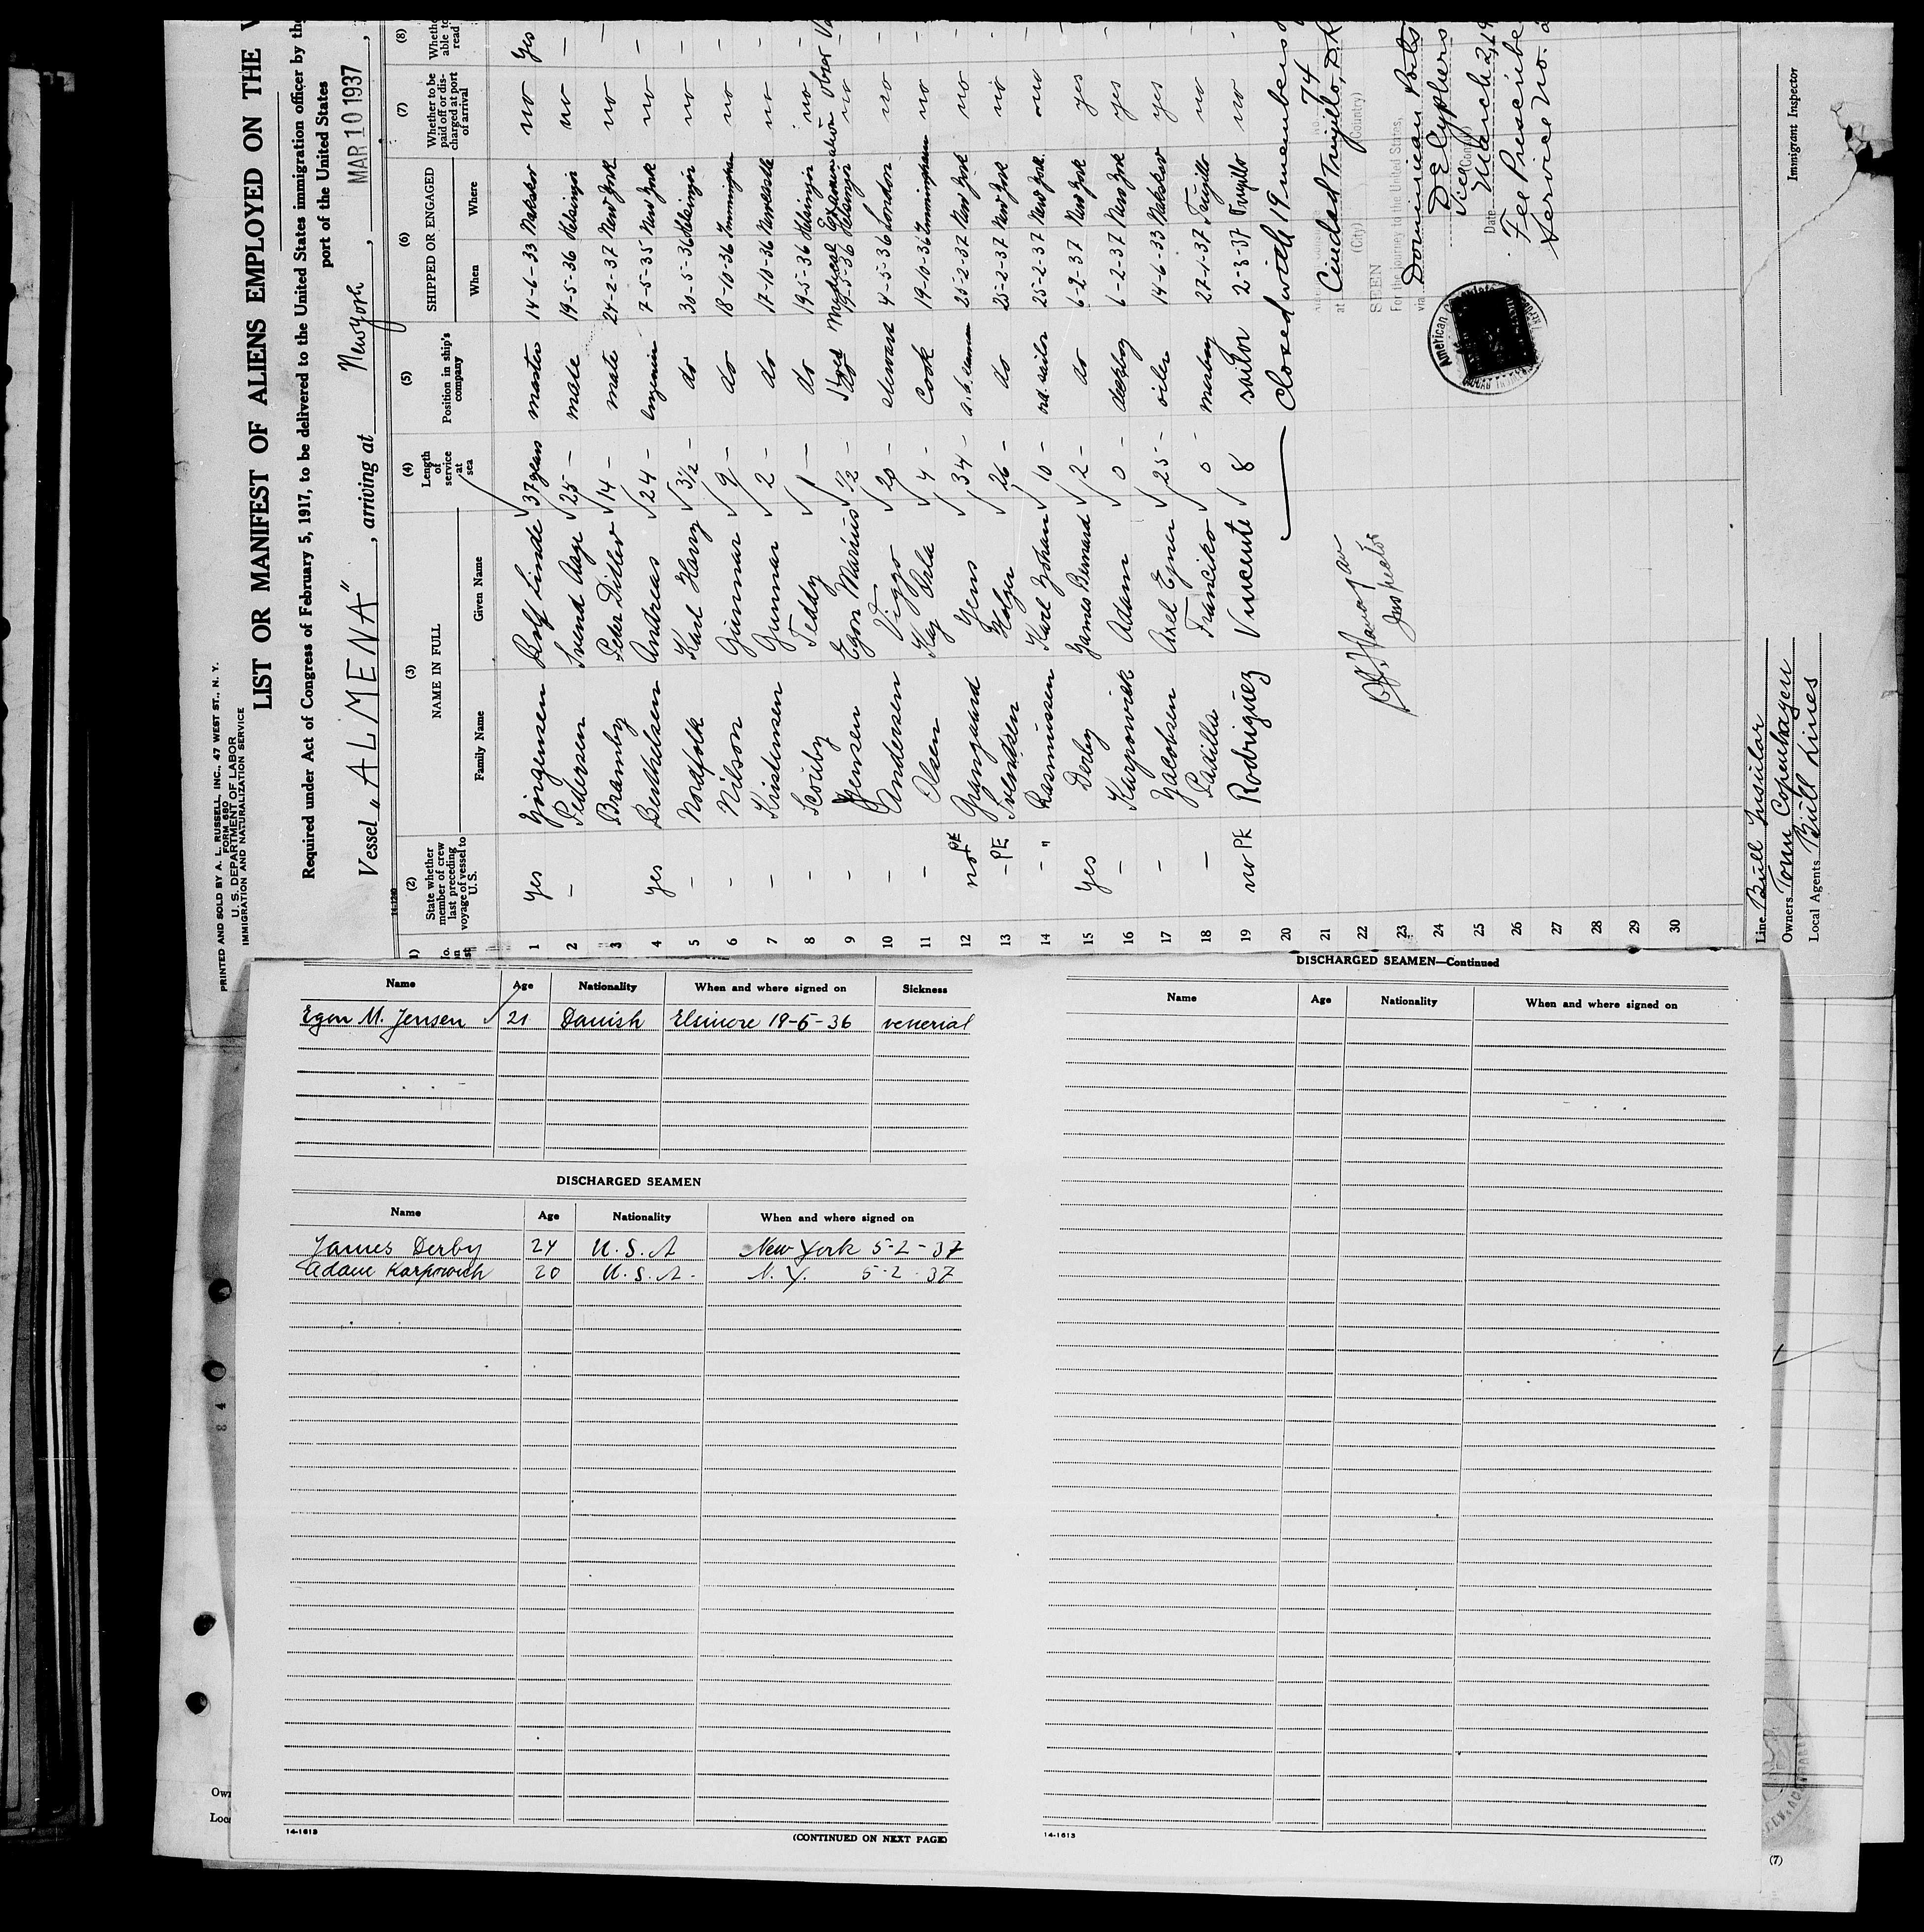 PRINTED AND SOLD BY A. L. RUSSELL, INC., 47 WEST ST., N. Y.
FORM 680
U. S. DEPARTMENT OF LABOR
IMMIGRATION AND NATURALIZATION SERVICE
LIST OR MANIFEST OF ALIENS EMPLOYED ON THE
Required under Act of Congress of February 5, 1917, to be delivered to the United States immigration officer by the
port of the United States
Vessel "ALMENA", arriving at New York, MAR 10 1937,
14-1240
(2) (3) (4) (5) (6) (7) (8)
State whether member of crew last preceding voyage of vessel to U.S.
NAME IN FULL
Family Name Given Name
Length of service at sea
Position in ship's company
SHIPPED OR ENGAGED
When Where
Whether to be paid off or discharged at port of arrival
1 yes Jürgensen Rolf Linde 37 years master 14-6-33 Nakskov no Yes
2 - Pedersen Svend Aage 25 - mate 19-5-36 Helsingör no -
3 Bramby Peter Ditlev 14 - mate 24-2-37 New York no -
4 yes Berthelsen Andreas 24 - Engenier 7-5-35 New York no -
5 - Nordfolk Karl Harry 3½ - do 30-5-36 Helsingör no -
6 - Nilson Gunnar 9 - do 18-10-36 Immingham no -
7 - Kristensen Gunnar 2 - do 17-10-36 Newcastle no -
8 - Scouby Teddy 1 - do 19-5-36 Helsingör no -
Medical Examination obser
9 - Jensen Egon Marius ½ - do 19-5-36 Helsingör no -
10 - Andersen Viggo 20 - steward 4-5-36 London no -
11 - Olsen Kaj Orla 4 - Cook 19-10-36 Immingham no -
12 no PE Grangaard Jens 34 - a.b. seaman 25-2-37 New York no -
13 - PE Svendsen Holger 26 - do 25-2-37 New York no -
14 - " Rasmussen Karl Johan 10 - ord. sailor 25-2-37 New York no -
15 yes Derby James Bernard 2 - do 6-2-37 New York yes -
16 - Karpowich Adam 0 - deckboy 6-2-37 New York yes -
17 - Jacobsen Axel Ejner 25 - oiler 14-6-33 Nakskov yes -
18 - Padilla Francisko 0 - messboy 27-1-37 Trujillo no -
19 no PE Rodriguez Vincente 8 sailor 2-3-37 Trujillo no -
20 Closed with 19 members
21 74
at Ciudad Trujillo, D.R.
(City) (Country)
22 SEEN
23 For the journey to the United States,
via Dominican Ports
24 D E Cyphers
Vice Consul
25 Date March 2, 19
26 Fee Prescribe
27 Service No.
28
29
30
American
Inspector
Line Bull Insular
Owners Torm Copenhagen
Local Agents Bull Lines
Immigrant Inspector
Name Age Nationality When and where signed on Sickness
Egon M. Jensen 21 Danish Elsinore 19-5-36 venerial
DISCHARGED SEAMEN
Name Age Nationality When and where signed on
James Derby 24 U.S.A New York 5-2-37
Adam Karpowich 20 U.S.A. N.Y. 5-2-37
14-1613
(CONTINUED ON NEXT PAGE)
DISCHARGED SEAMEN—Continued
Name Age Nationality When and where signed on
14-1613
(7)